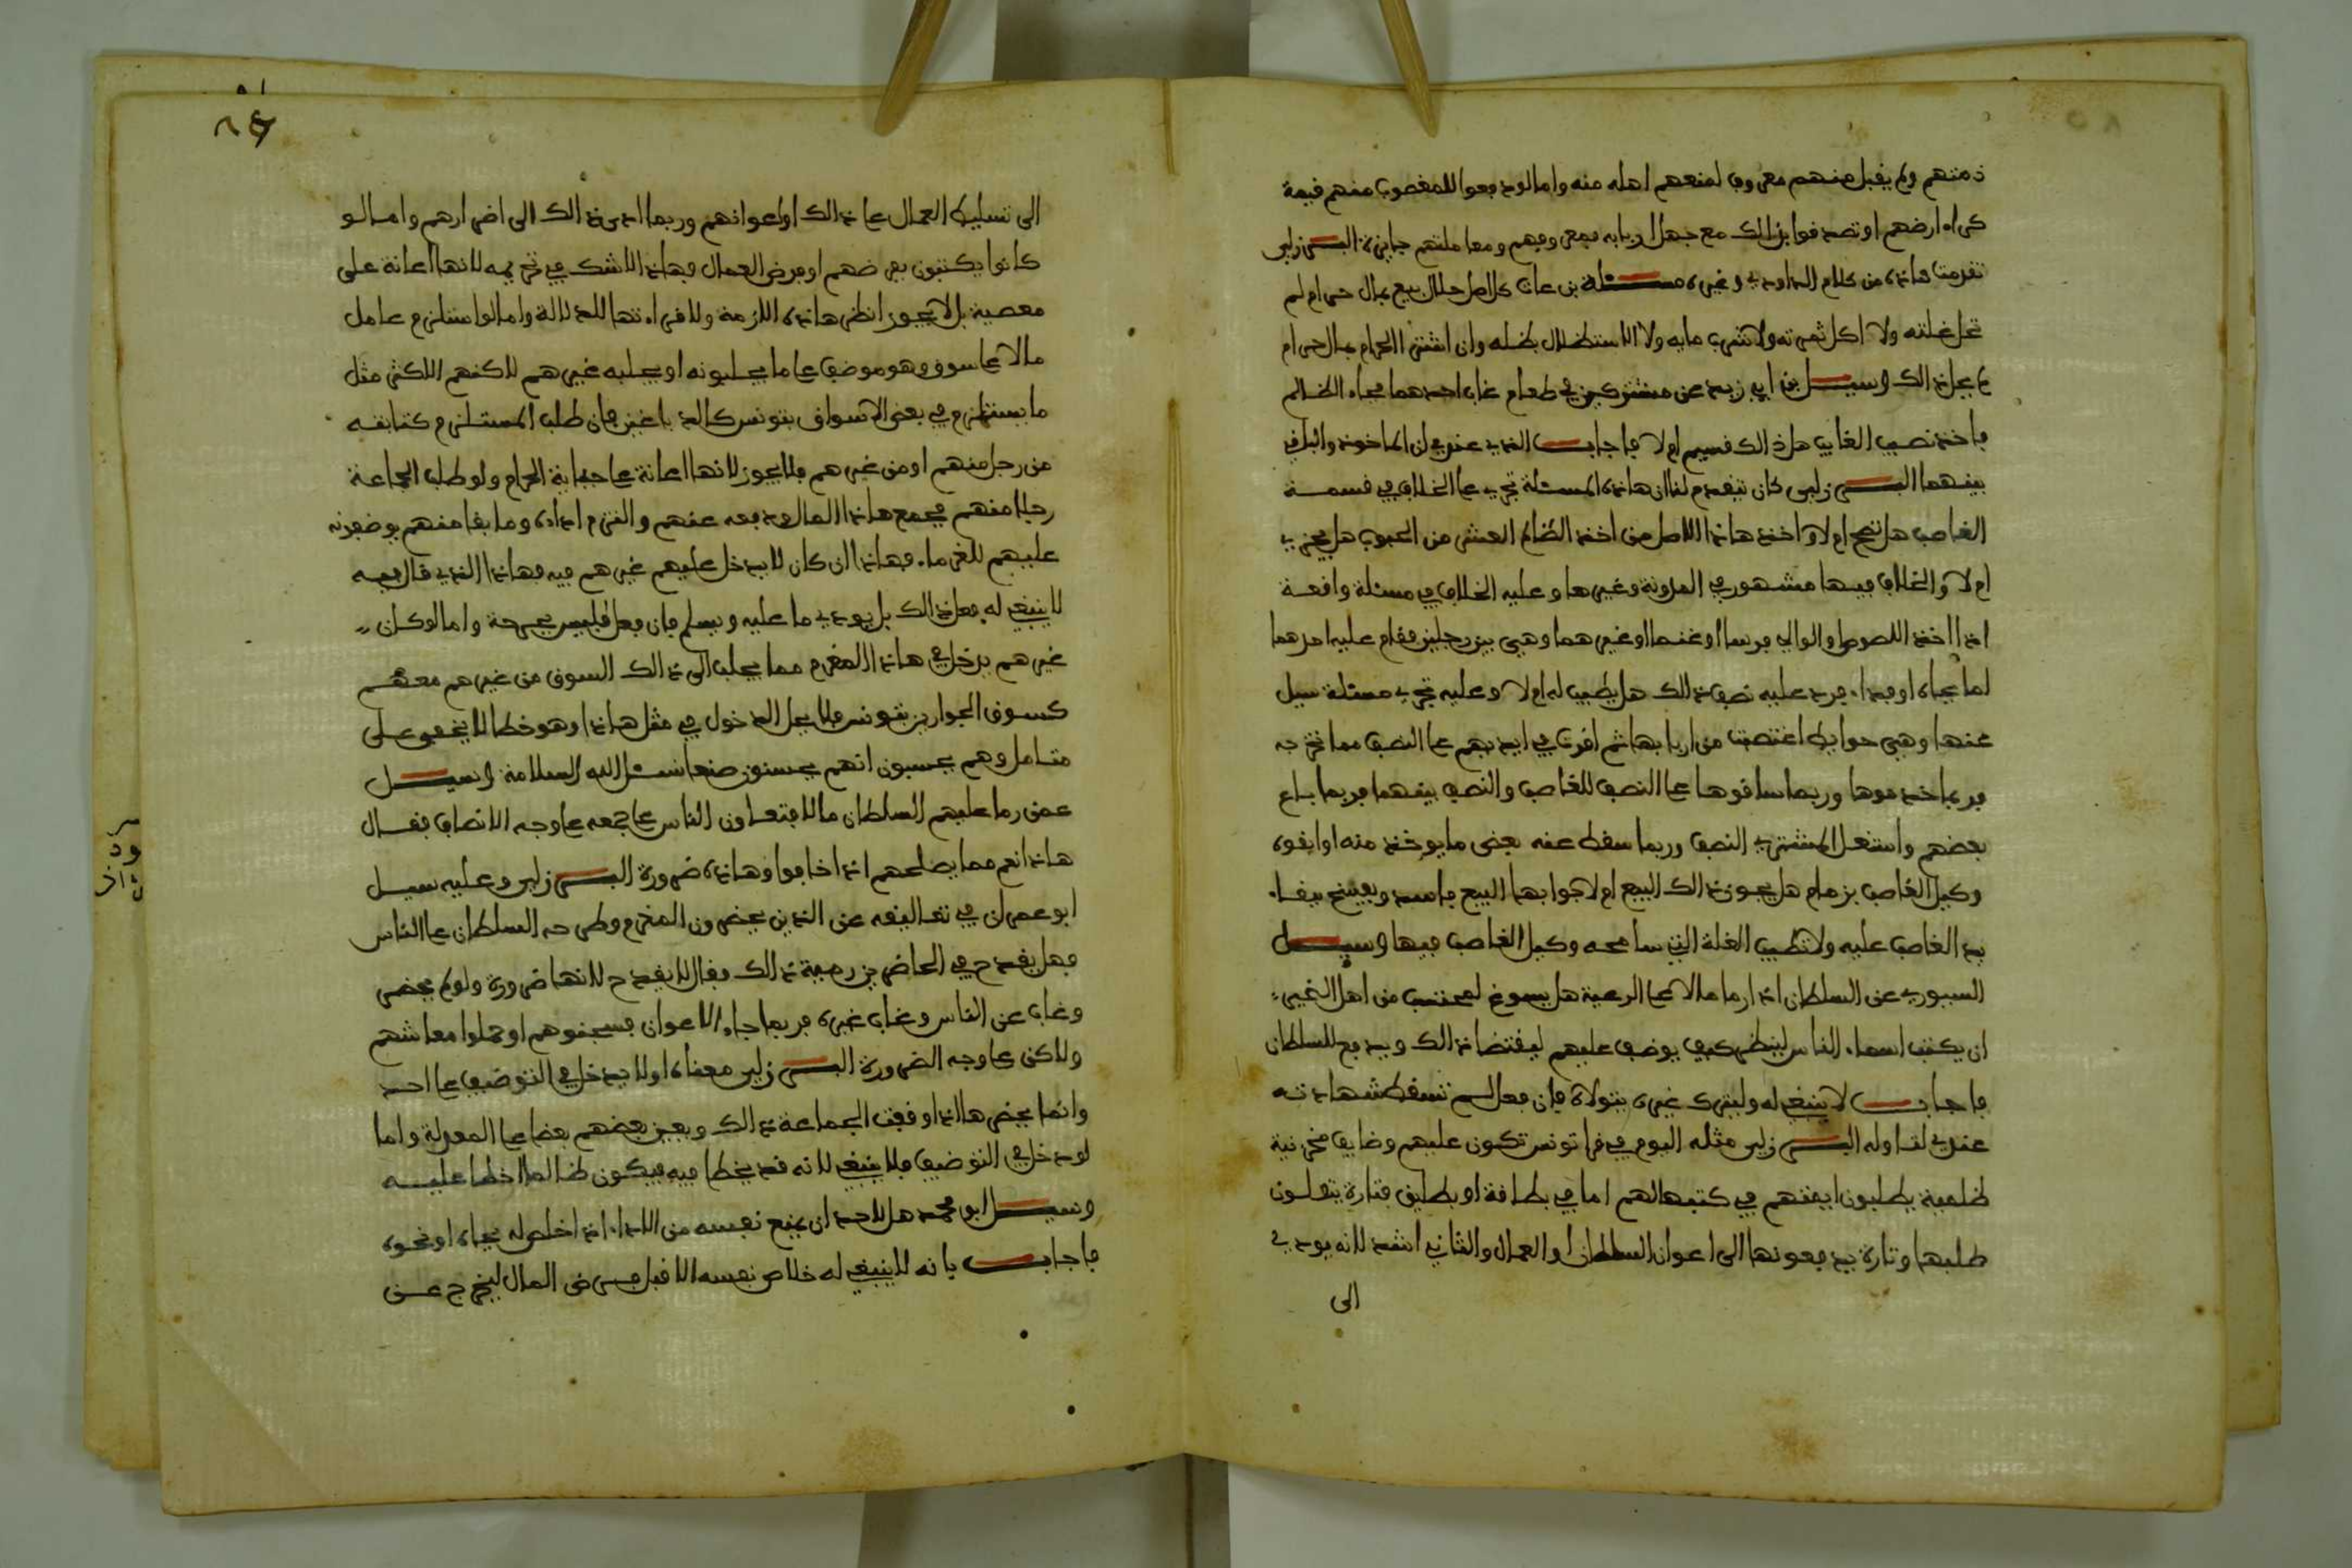 ذمتهم ولم يقبل منهم معروف لمنعهم اهله منه واما لو دفعوا للمغصوب منهم قيمة
كراء ارضهم او تصدقوا بذلك مع جهل اربابه فمعروفهم ومعاملتهم جايزة البرزلي
تقدمت هاذه من كلام الداودي وغيره مسئلة بن عات كل اصل حلال بيع بمال حرام لم
تحل غلته ولا اكل ثمرته ولا شرب مايه ولا الاستظلال بظله وان اشترا الحرام بمال حرام
لم يحل ذالك وسيل بن ابي زيد عن مشتركين في طعام غاب احدهما فجاء الظالم
فاخذ نصيب الغايب هل ذالك قسيم ام لا فاجاب الذي عندي ان الماخوذ والباقي
بينهما البرزلي كان تقدم لنا ان هاذه المسئلة تجري على الخلاف في قسمة
الغاصب هل تصح ام لا واخذ هاذا الاصل من اخذ الظالم العشر من الحبوب هل يجزي
ام لا والخلاف فيها مشهور في المدونة وغيرها وعليه الخلاف في مسئلة واقعة
اذا اخذ اللصوص او الوالي فرسا او غنما او غيرهما وهي بين رجلين فقام عليه احدهما
اما بجاه او فداء فرد عليه نصف ذلك هل يطيب له ام لا وعليه تجري مسئلة سيل
عنها وهي حوايط اغتصبت من اربابها ثم اقرت في ايديهم على النصف مما تخرجه
فربما خدموها وربما ساقوها على النصف للغاصب والنصف بينهما فربما باع
بعضهم واستغل المشتري النصف وربما سقط عنه بعض ما يوخذ منه او ابقوه
وكيل الغاصب بزمام هل يجوز ذالك البيع ام لا جوابها البيع فاسد ويفسخ بيقاء
يد الغاصب عليه ولا تطيب الغلة التي سامحه وكيل الغاصب فيها وسيل
السيوري عن السلطان اذا رما مالا على الرعية هل يسوغ لمحتسب من اهل الخير
ان يكتب اسماء الناس لينظر كيف يوضف عليهم ليقتضا ذالك ويدفع للسلطان
فاجاب لا ينبغي له وليترك غيره يتولاه فان فعل لم تسقط شهادته
عندي لتاوله البرزلي مثله اليوم في قرا تونس تكون عليهم وضايف مخزنية
ظلمية يطلبون ايمتهم في كتبها لهم اما في بطاقة او بطايق فتارة يتولون
طلبها وتارة يدفعونها الى اعوان السلطان او العمال والثاني اشد لانه يودي
الى
الى تسليط العمال على ذالك او اعوانهم وربما ادى ذالك الى اضرارهم واما لو
كانوا يكتبون بعرضهم او فرض العمال فهاذا لا شك في تحريمه لانها اعانة على
معصية بل لا يجوز النظر هاذه اللازمة ولا قراءتها للدلالة واما لو استلزم عامل
مالا على سوق وهو موضف على ما يجلبونه او يجلبه غيرهم لاكنهم الاكثر مثل
ما يستلزم في بعض الاسواق بتونس كالدباغين فان طلب المستلزم كتابته
من رجل منهم او من غيرهم فلا يجوز لانها اعانة على جباية الحرام ولو طلب الجماعة
رجلا منهم فجمع هاذا المال ودفعه عنهم والتزم اداه وما بقا منهم يوضفونه
عليهم للغرماء فهاذا ان كان لا يدخل عليهم غيرهم فيه فهاذا الذي قال فيه
لا ينبغي له فعل ذالك بل يودي ما عليه ويسلم فان فعل فليس بجرحة واما لو كان
غيرهم يدخل في هاذا المغرم مما يجلب الى ذالك السوق من غيرهم معهم
كسوق الجوارين بتونس فلا يحل الدخول في مثل هاذا وهو خطا لا يخفى على
متامل وهم يحسبون انهم يحسنون صنعا نسئل الله السلامة وسيل
عمن رما عليهم السلطان مالا فتعاون الناس على جمعه على وجه الانصاف فقال
هاذا نعم مما يصلحهم اذا خافوا وهاذه ضرورة البرزلي وعليه سيل
ابو عمران في تعاليقه عن الذين يحضرون المغرم وطرحه السلطان على الناس
فهل يقدح في الحاضرين رمية ذالك فقال لا يقدح لانها ضرورة ولو لم يحضر
وغاب عن الناس وغاب غيره فربما جاء الاعوان فسجنوهم او حملوا معاشهم
ولاكن على وجه الضرورة البرزلي معناه اولا يدخل في التوضيف على احد
وانما يحضرها اذا وفقت الجماعة ذالك ويعين بعضهم بعضا على المعدلة واما
لو دخل في التوضيف فلا ينبغي لانه قد يخطا فيه فيكون ظالما اخطا عليه
وسيل ابو محمد هل لاحد ان يمنع نفسه من الاداء اذا خلص له بجاه او نحوه
فاجاب بانه لا ينبغي له خلاص نفسه الا قبل فرض المال ليخرج عن